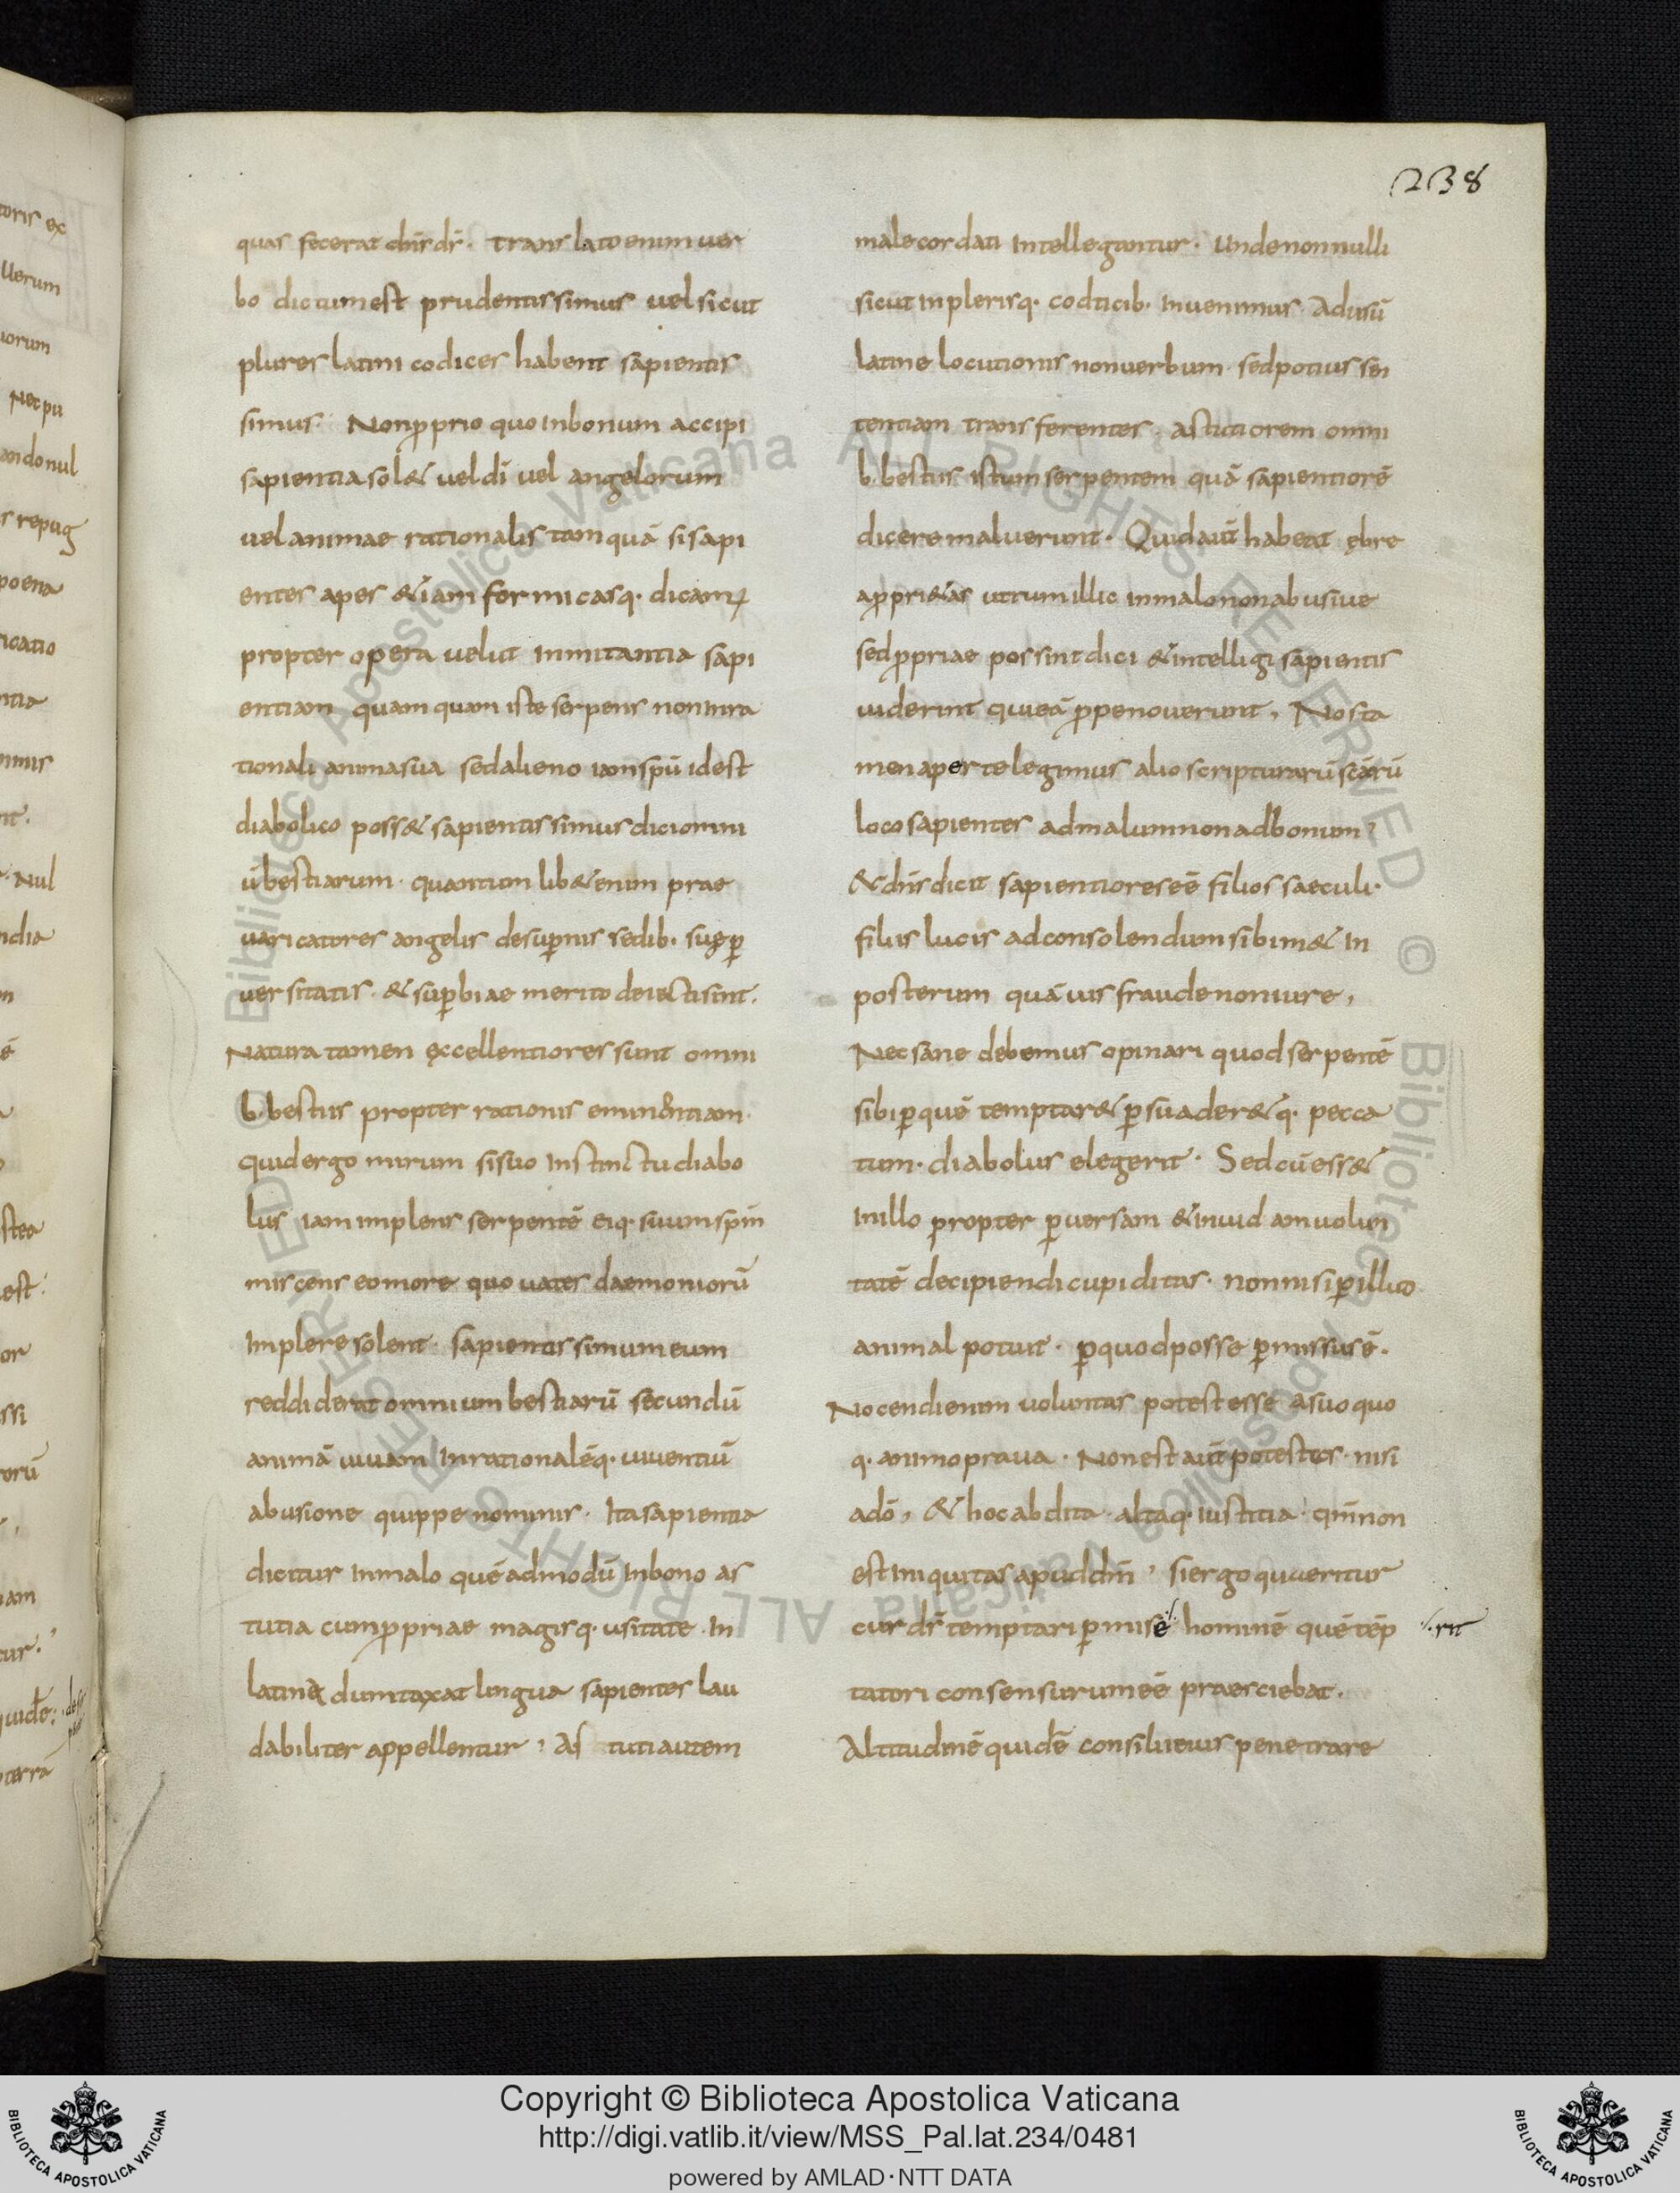 238
quas fecerat dn̄s ds̄. Translato enim uer
bo dictum est prudentissimus uel sicut
plures latini codices habent sapientis
simus. Non ꝓprio quo in bonum accipi
sapientia sol& uel dī uel angelorum
uel animae rationalis tamquā si sapi
entes apes &iam formicasq· dicam;
propter opera uelut inmitantia sapi
entiam quamquam iste serpens non inra
tionali anima sua sed alieno iam spū id est
diabolico poss& sapientissimus dici omni
ū bestiarum. quantum lib& enim prae
uaricatores angelis de suꝑnis sedib· suę ꝑ
uersitatis. & suꝑbiae merito deiecti sint.
Natura tamen ęccellentiores sunt omni
b· bestiis propter rationis eminentiam.
quid ergo mirum si suo instinctu diabo
lus iam implens serpentē eiq· suum spm̄
miscens eo more quo uates daemoniorū
implere solent. sapientissimum eum
reddiderat omnium bestiarū secundū
animā uiuam inrationalēq· uiuentiū
abusione quippe nominis. Ita sapientia
dicitur in malo quēadmodū in bono as
tutia cum ꝓpriae magisq· usitate. In
latinę dumtaxat lingua sapientes lau
dabiliter appellentur, As tuti autem
male cordati intellegantur. Unde nonnulli
sicut in plerisq· codicib· inuenimus. Ad usū
latine locutionis non uerbum. sed potius sen
tentiam transferentes. astutiorem omni
b· bestiis istum serpentem quā sapientiorē
dicere maluerunt. Quid aūt habeat ębre
a ꝓpri&as utrum illic in malo non abusiue
sed ꝓpriae possint dici & intelligi sapientis
uiderint qui eā ꝓpe nouerunt, Nos ta
men aperte legimus alio scripturarū scārū
loco sapientes ad malum non ad bonum,
& dn̄s dicit sapientiores eē filios saeculi.
filiis lucis ad consolendum sibim& in
posterum quāuis fraude non iure,
Nec sane debemus opinari quod serpentē
sibi ꝑ quē temptar& ꝑsuader&q· pecca
tum. diabolus elegerit. Sed cū ess&
in illo propter ꝑuersam & inuidam uolun
tatē decipiendi cupiditas. non nisi ꝑ illud
animal potuit. ꝑ quod posse ꝑmissus ē.
Nocendi enim uoluntas potest esse a suo quo
q· animo praua. Non est aūt potestas. nisi
a dō, & hoc abdita. altaq· iustitia. qm̄ non
est iniquitas apud dm̄, si ergo quaeritur
cur ds̄ temptari ꝑmise ·/. hominē quē tēp ·/. rit
tatori consensurum eē praesciebat.
Altitudinē quidē consilii eius penetrare
Copyright © Biblioteca Apostolica Vaticana
http://digi.vatlib.it/view/MSS_Pal.lat.234/0481
powered by AMLAD·NTT DATA
BIBLIOTECA APOSTOLICA VATICANA
BIBLIOTECA APOSTOLICA VATICANA